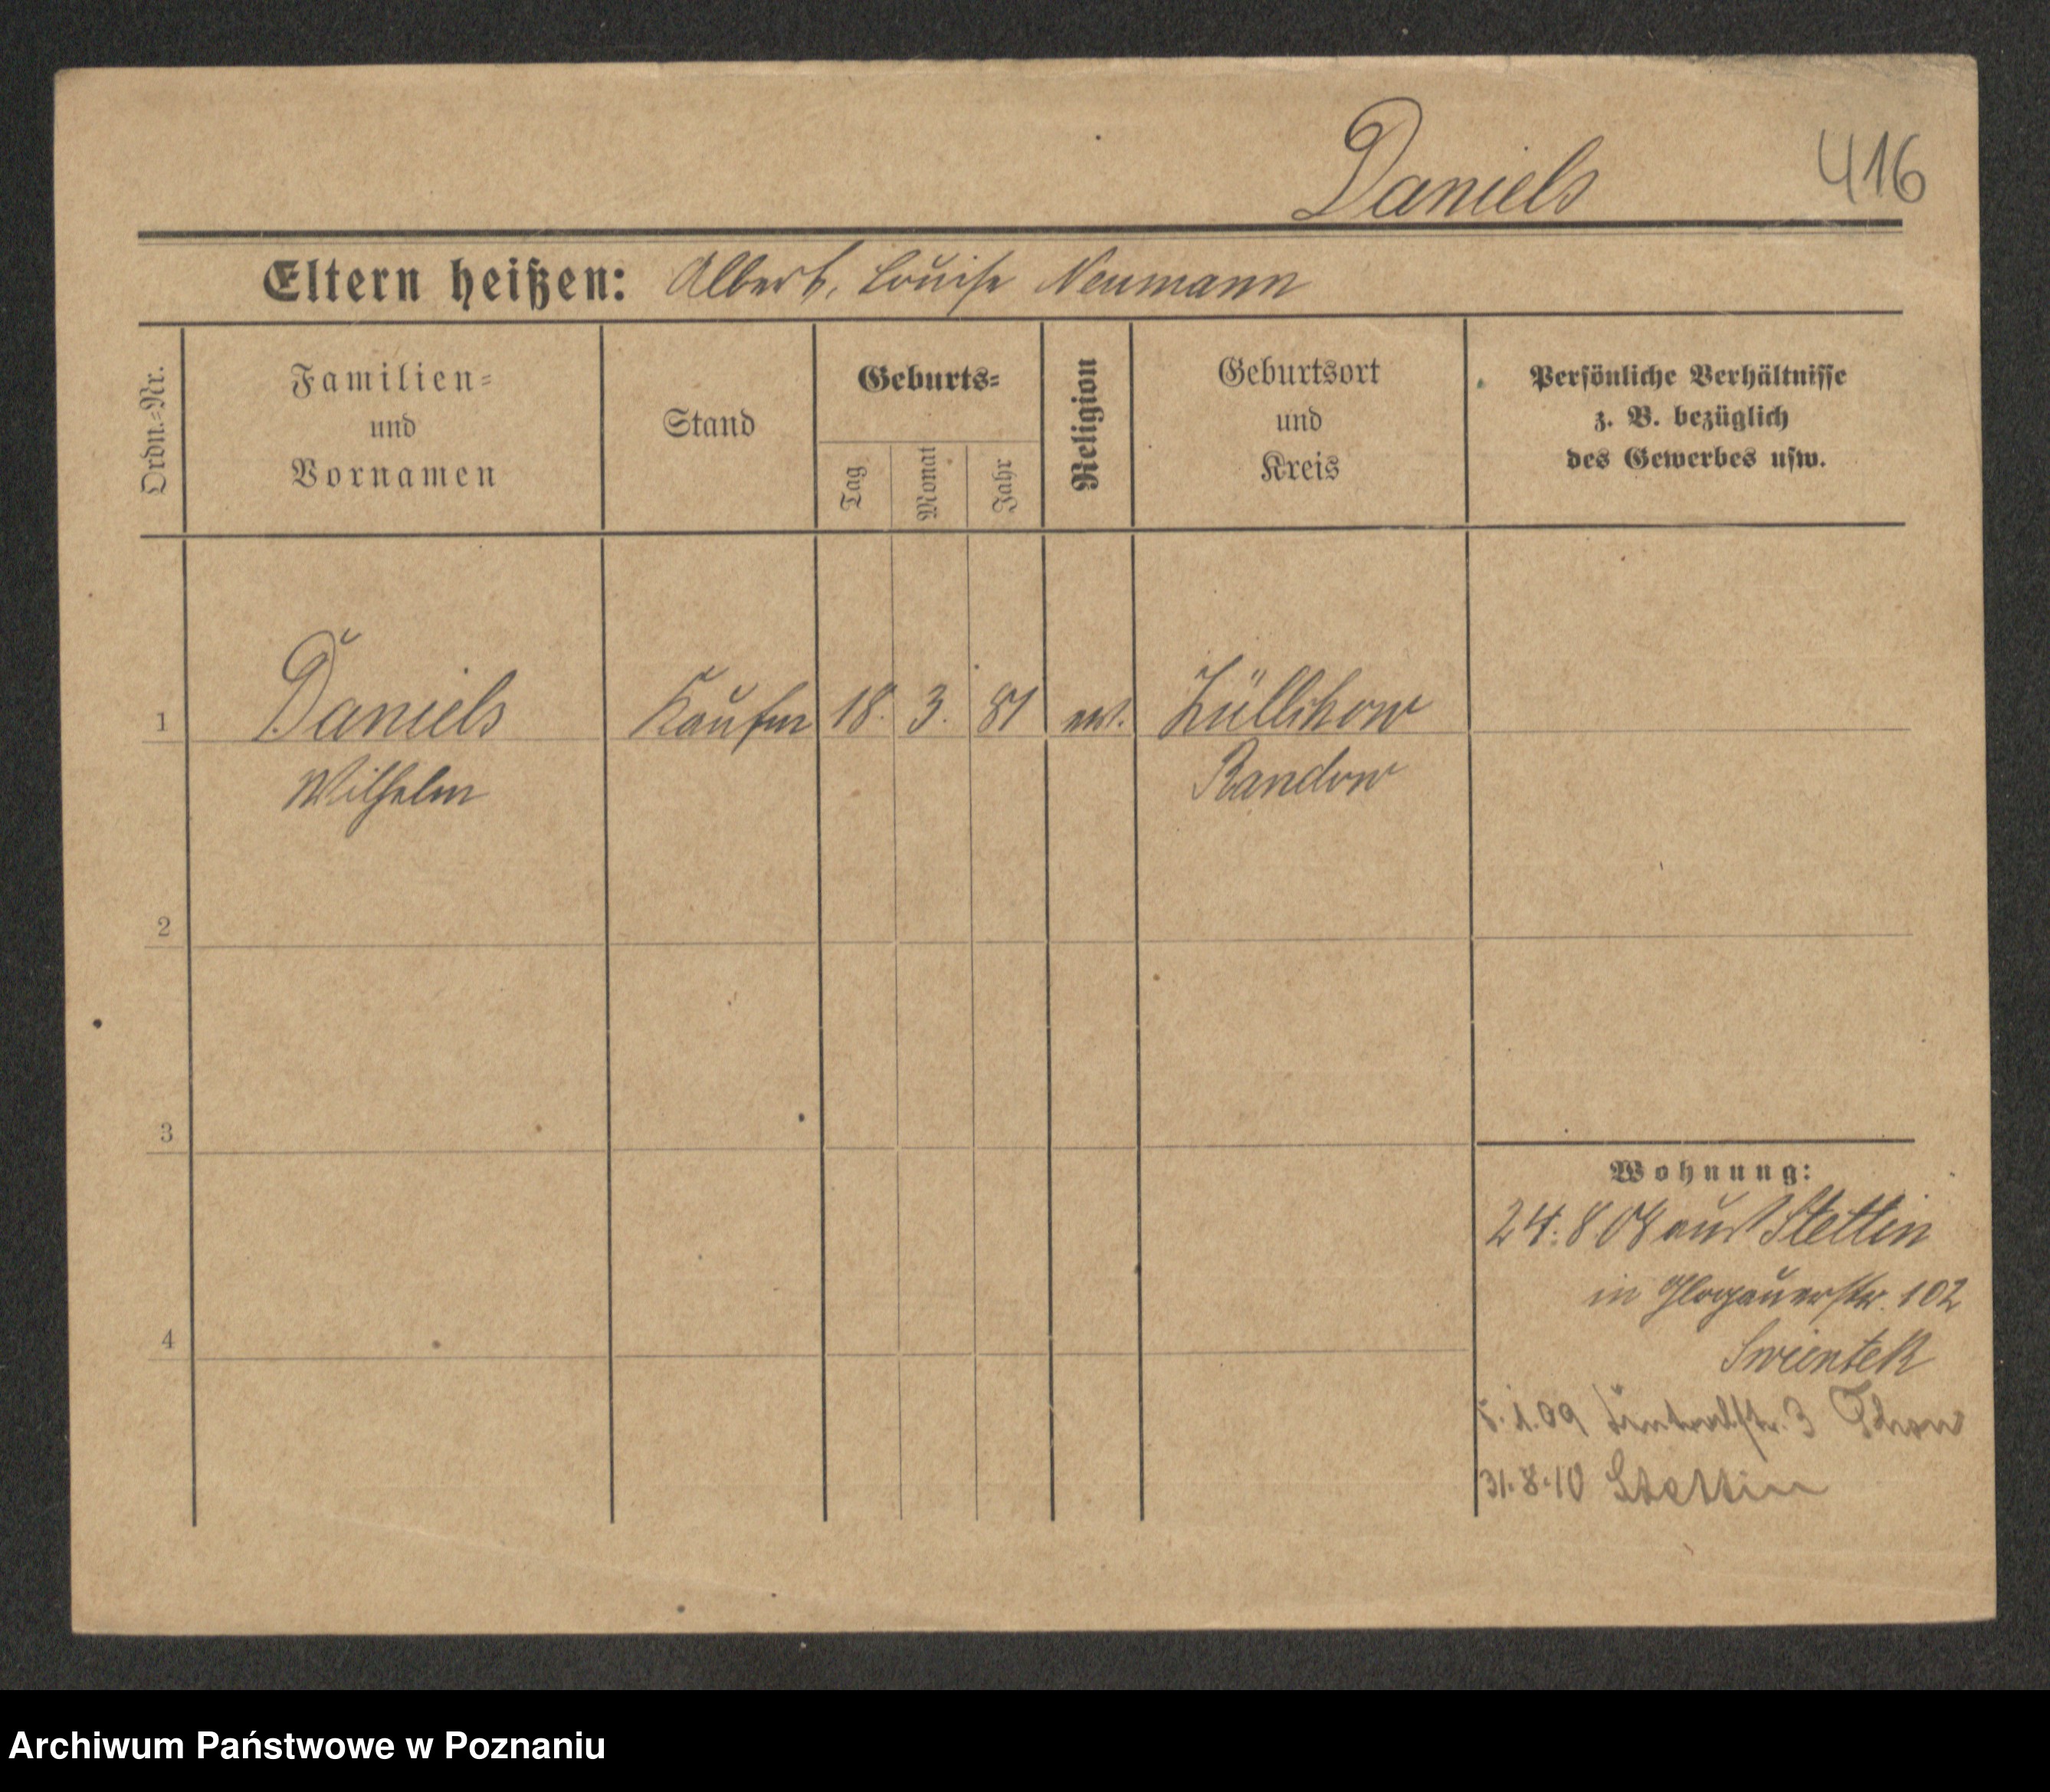 Daniels
416
Eltern heißen: Albert, Louise Neumann
Ordn.=Nr.
Familien=
und
Vornamen
Stand
Geburts=
Tag
Monat
Jahr
Religion
Geburtsort
und
Kreis
Persönliche Verhältnisse
z. B. bezüglich
des Gewerbes usw.
1 Daniels Kaufm 18. 3. 81 ev. Züllchow
Wilhelm Randow
2
3
4
Wohnung:
24.8 08 aus Stettin
in Glogauerstr. 102
Swientek
5.1.09 3
31.8.10 Stettin
Archiwum Państwowe w Poznaniu